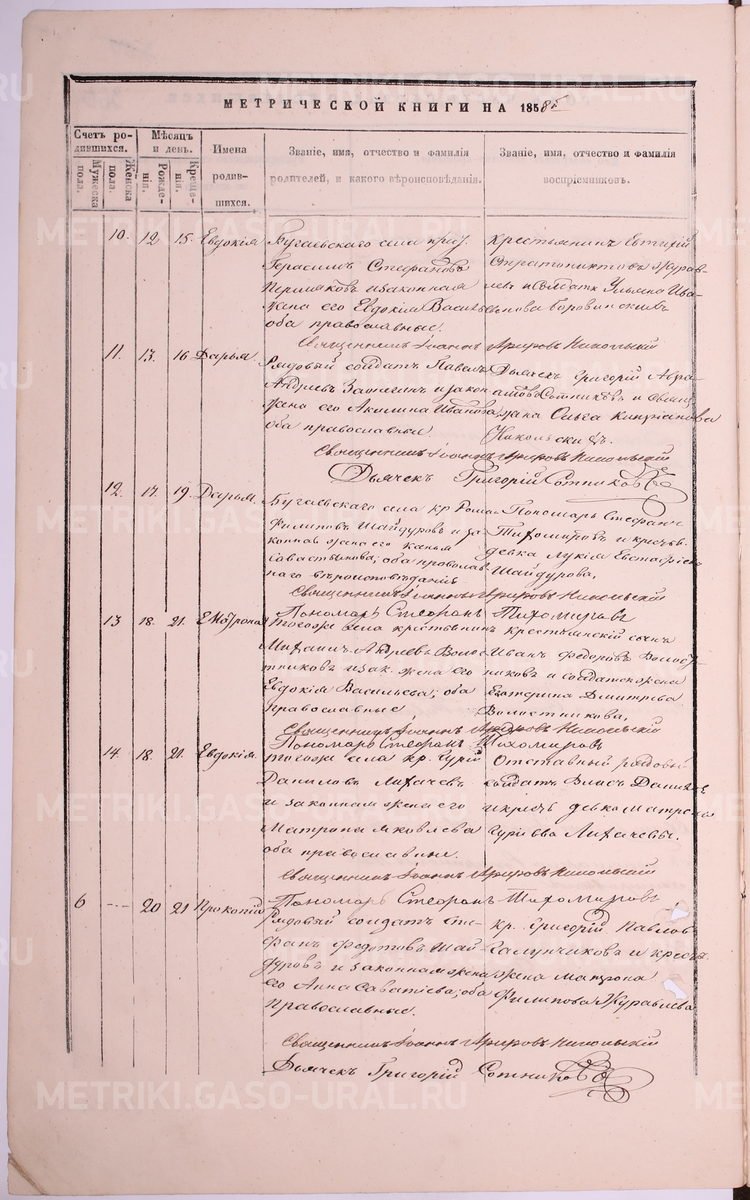 МЕТРИЧЕСКОЙ КНИГИ НА 1858
Счетъ ро-
дившихся.
Мужеска
пола.
Женска
пола.
Мѣсяцъ
и день.
Рожде-
нія.
Креще-
нія.
Имена
родив-
шихся.
Званіе, имя, отчество и фамилія
родителей, и какого вѣроисповѣданія.
Званіе, имя, отчество и фамилія
воспріемниковъ.
10. 12. 15. Евдокія
Бугаевскаго села
Герасимъ Стефановъ
Пермяковъ и законная
жена его Евдокія Василь
оба православные.
крестьянинъ Евтихій
Журав-
левъ и Ульяна Ива-
нова
Священникъ Іоаннъ Никольскій
11. 13. 16 Дарья.
Рядовый солдатъ Павелъ
Андреевъ и закон
жена его Акилина Иванова
оба православные
Дьячекъ Григорій Авра-
амовъ Сотниковъ и
жена Ольга
Никольски
Священникъ Іоаннъ Никольскій
Дьячекъ Григорій Сотниковъ
12. 17. 19. Дарья.
Бугаевскаго села кр Рома
Филиповъ Шайдуровъ и за
конная жена его
Савастьянова; оба православ
наго вѣроисповѣданія
Пономарь Стефанъ
Тихомировъ и
девка Лукія
Шайдурова,
Священникъ Іоаннъ Никольскій
Пономарь Стефанъ Тихомировъ
13 18. 21. Матрона
Тогоже села крестьянинъ
Михаилъ Андреевъ Волос
тниковъ и зак. жена его
Евдокія Васильева; оба
православные
крестьянскій сынъ
Иванъ Федоровъ Волост
никовъ и солдатская жена
Екатерина Дмитріева
Волостникова,
Священникъ Іоаннъ Никольскій
Пономарь Стефанъ Тихомировъ
14. 18. 21. Евдокія
тогоже села кр. Гурій
Даниловъ Лихачевъ
и законная жена его
Матрона Яковлева
оба православные.
Отставный рядовый
солдатъ Власъ Данилов
и крест девка Матрена
Гуріева Лихачевы.
Священникъ Іоаннъ Никольскій
Пономарь Стефанъ Тихомировъ
6 --- 20 21 Прокопій
Рядовый солдатъ Сте-
фанъ Федотовъ Шай
дуровъ и законная жена
его Анна Саватіева; оба
православные.
кр. Григорій Павлов
Галунчиковъ и крест.
жена Матрона
Филипова Журавлева
Священникъ Іоаннъ Никольскій
Дьячекъ Григорій Сотниковъ
METRIKI.GASO-URAL.RU